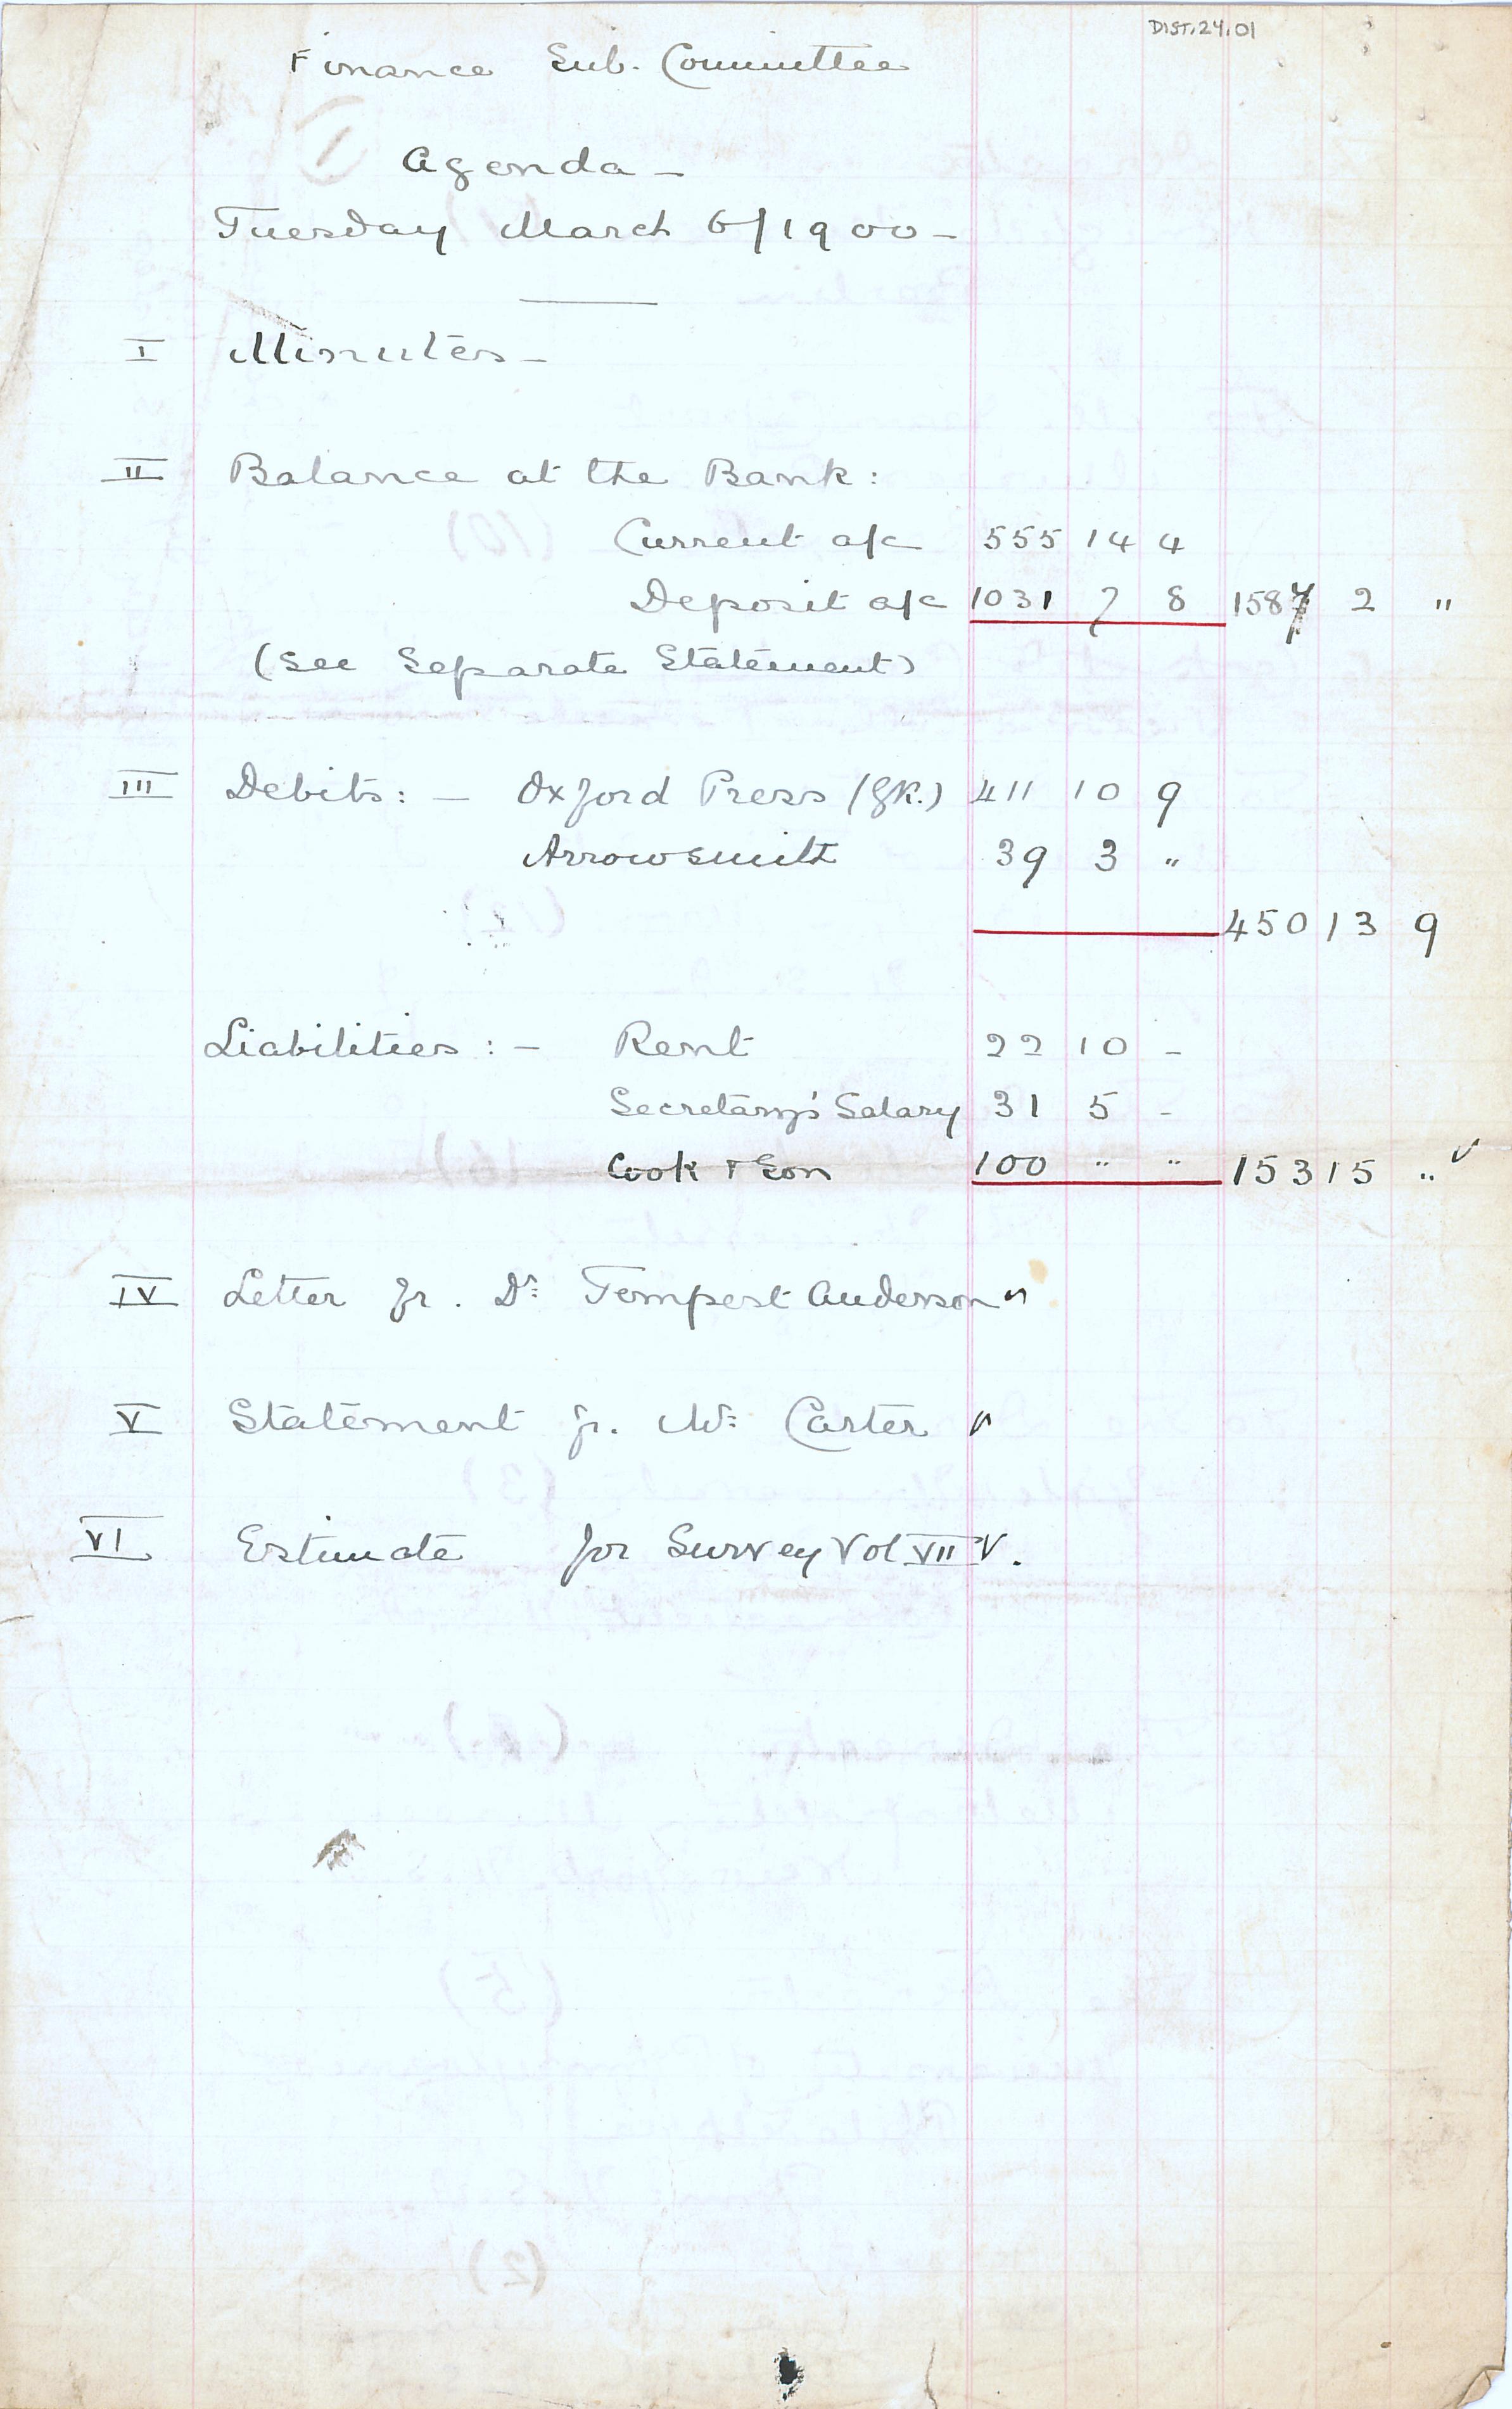 DIST.24.01
Finance Sub. Committee
1
Agenda –
Tuesday March 6/1900 –
I Minutes –
II Balance at the Bank:
Current a/c 555 14 4
Deposit a/c 1031 7 8 1587 2 "
(See Separate Statement)
III Debits: – Oxford Press (Gk.) 411 10 9
Arrowsmith 39 3 "
450 13 9
Liabilities: – Rent 22 10 –
Secretary's Salary 31 5 –
Cook & Son 100 " " 153 15 "
IV Letter fr. Dr Tempest Anderson
V Statement fr. Mr Carter
VI Estimate for Survey Vol VII